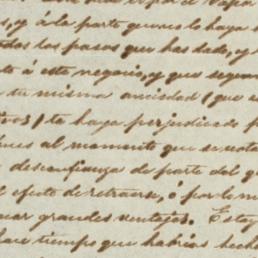 y á la parte que nos lo haya
los pasos que has dado, y
á este negocio, y que segun
tu misma ansiedad (que
te haya perjudicado
al momento que se nota
desconfianza de parte del
el efecto de retraerse, ó por lo
grandes ventajas. Estoy
tiempo que habrias hecho